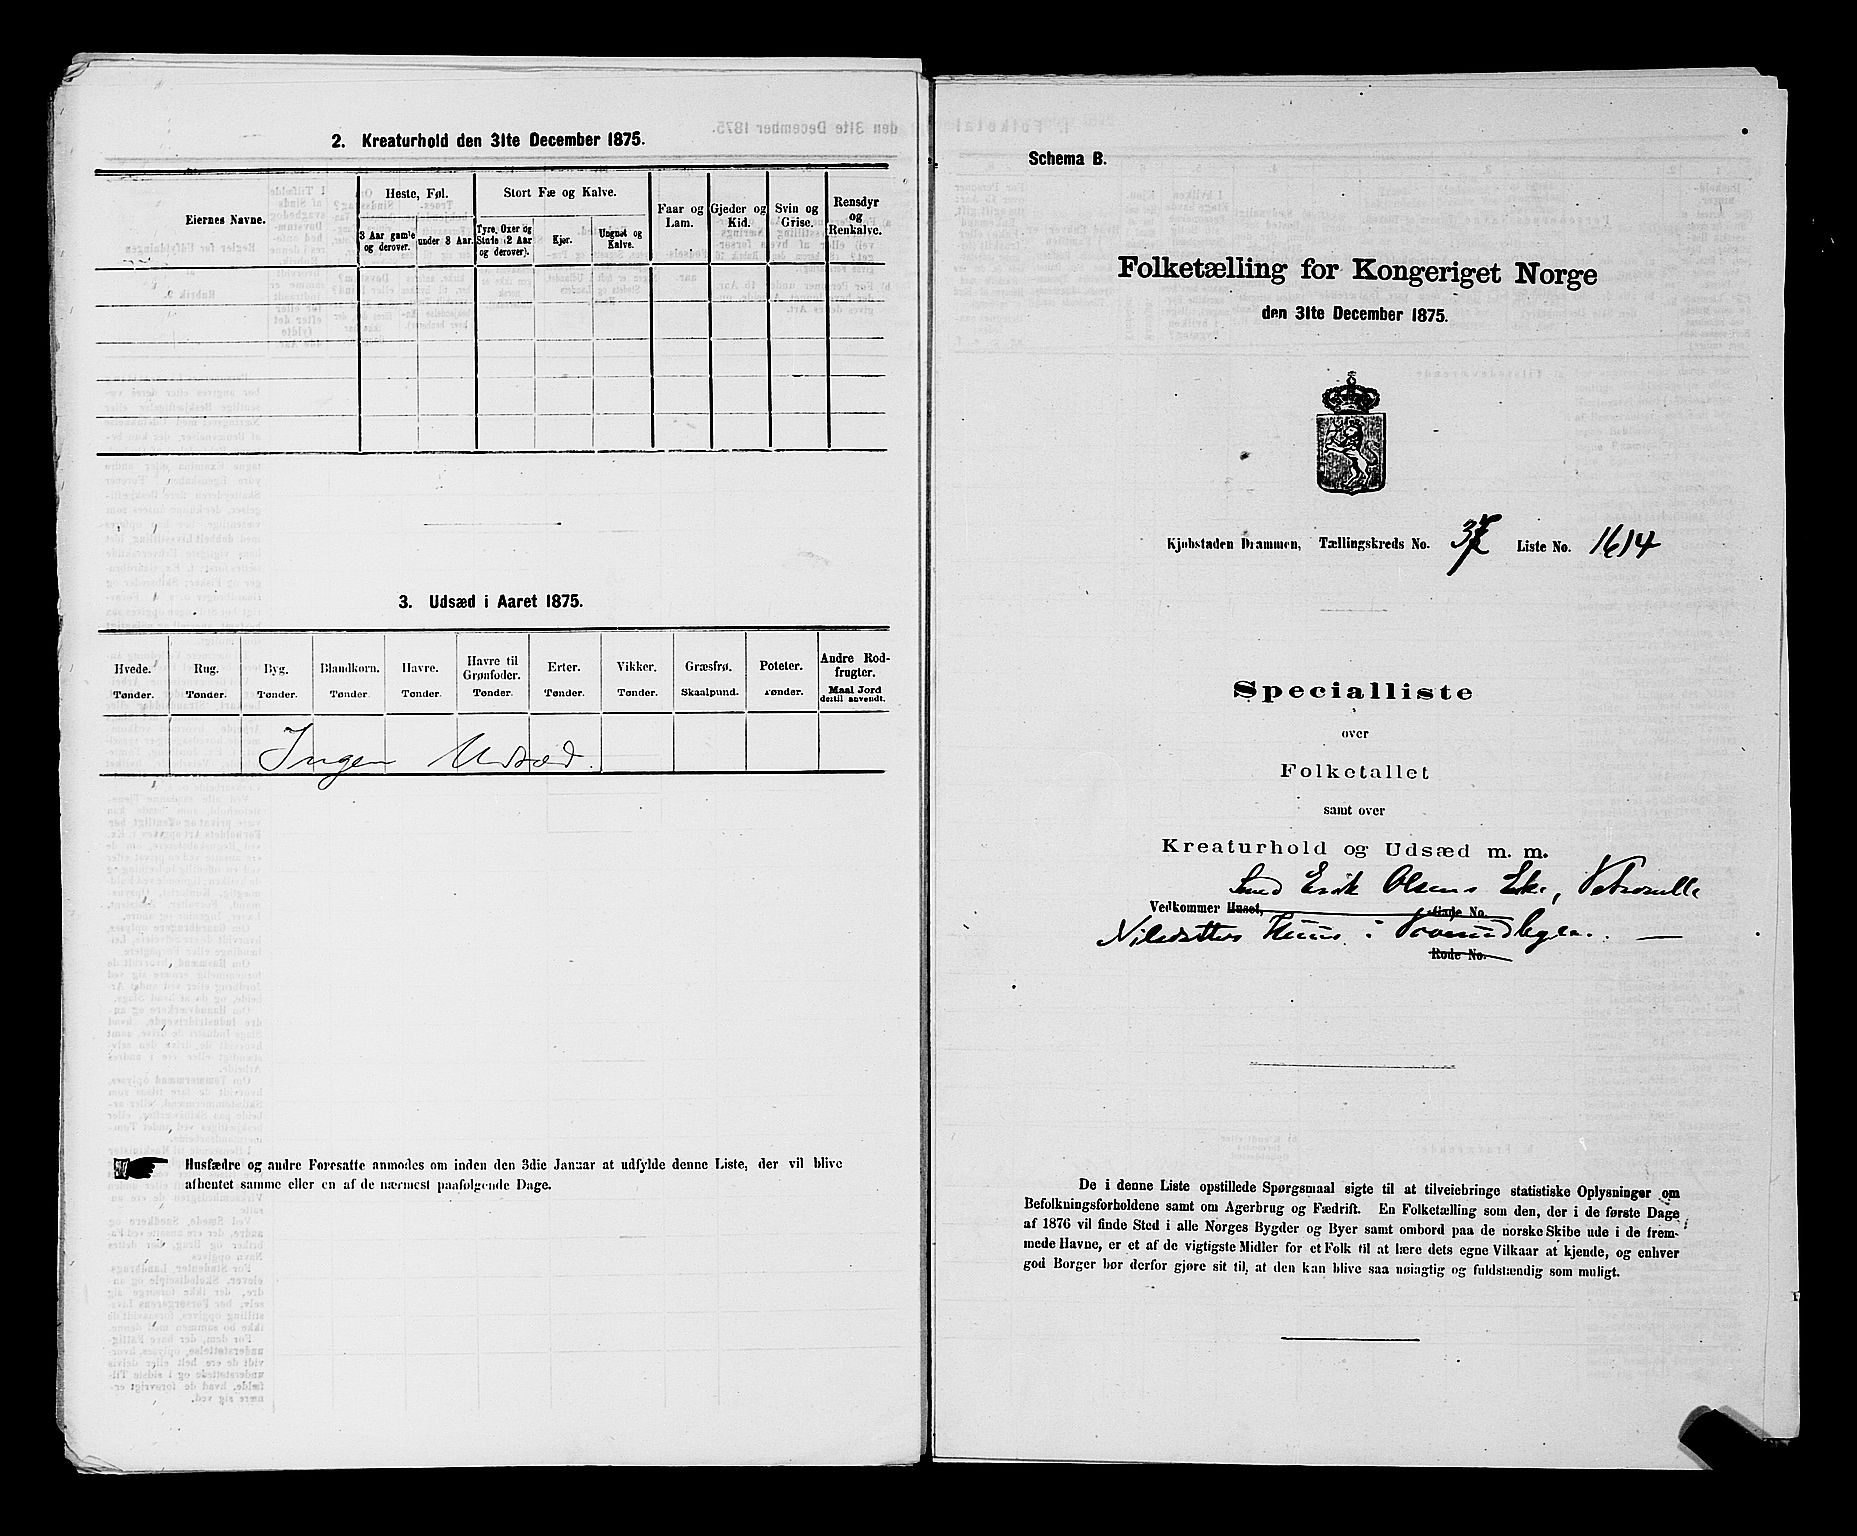 2. Kreaturhold den 31te December 1875.
Eiernes Navne.
Heste, Føl.
Stort Fæ og Kalve.
Faar og Lam.
Gjeder og Kid.
Svin og Grise.
Rensdyr og Renkalve.
3 Aar gamle og derover.
under 3 Aar.
Tyre, Oxer og Stude (2 Aar og derover).
Kjør.
Ungnøt og Kalve.
3. Udsæd i Aaret 1875.
Hvede.
Rug.
Byg.
Blandkorn.
Havre.
Havre til Grønfoder.
Erter.
Vikker.
Græsfrø.
Poteter.
Andre Rodfrugter.
Tønder.
Tønder.
Tønder.
Tønder
Tønder.
Tønder.
Tønder.
Tønder.
Skaalpund.
Tønder.
Maal Jord dertil anvendt.
Ingen Udsæd.
Husfædre og andre Foresatte anmodes om inden den 3die Januar at udfylde denne Liste, der vil blive
afhentet samme eller en af de nærmest paafølgende Dage.
Schema B.
Folketælling for Kongeriget Norge
den 31te December 1875.
Kjøbstaden Drammen, Tællingskreds No. 37 Liste No. 1614
Specialliste
over
Folketallet
samt over
Kreaturhold og Udsæd m. m.
Erik Olsens Eke,
Vedkommer Huset, Gade No.
Nilsdatters Huus i
Rode No.
De i denne Liste opstillede Spørgsmaal sigte til at tilveiebringe statistiske Oplysninger om
Befolkningsforholdene samt om Agerbrug og Fædrift. En Folketælling som den, der i de første Dage
af 1876 vil finde Sted i alle Norges Bygder og Byer samt ombord paa de norske Skibe ude i de frem-
mede Havne, er et af de vigtigste Midler for et Folk til at lære dets egne Vilkaar at kjende, og enhver
god Borger bør derfor gjøre sit til, at den kan blive saa nøiagtig og fuldstændig som muligt.